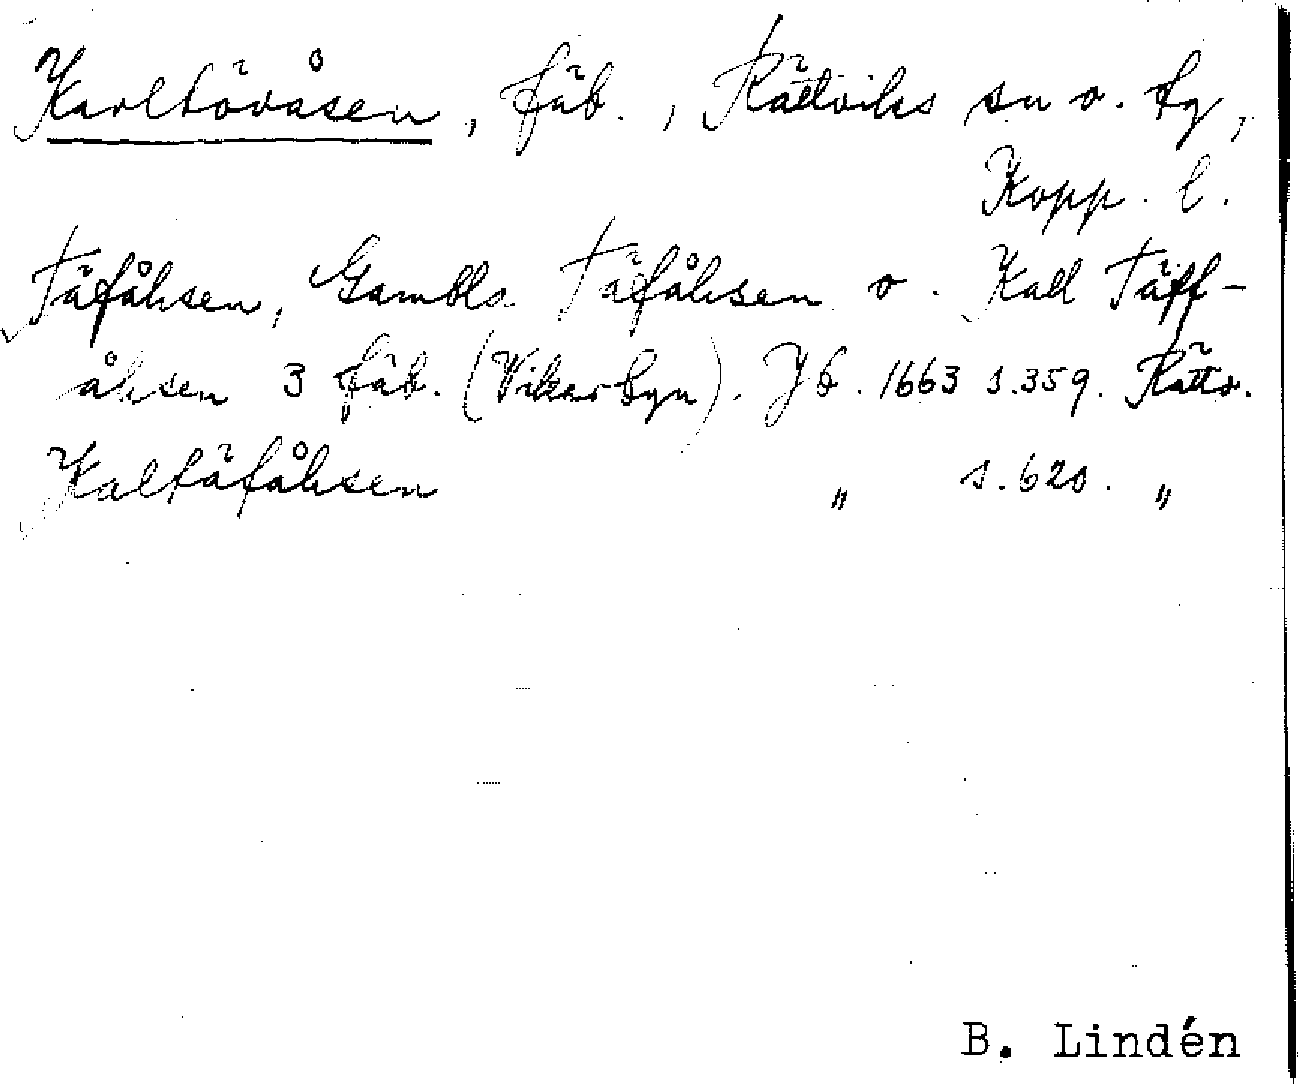 Karltövåsen, fäb., Rättviks sn o. tg,
Kopp. l.
Täfåhsen, Gambla Täfåhsen o. Kall Täff-
åhsen 3 fäb. (Vikarbyn). Jb. 1663 s.359. Rättv.
Kaltäfåhsen „ s.620. „
B. Lindén